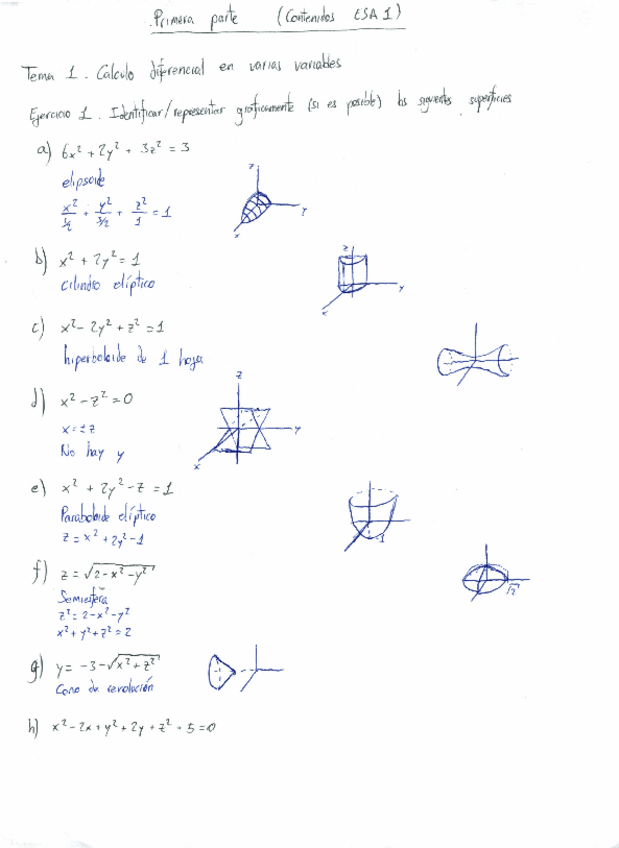 Primera parte (Contenidos ESA 1)
Tema 1. Cálculo diferencial en varias variables
Ejercicio 1. Identificar/representar gráficamente (si es posible) las siguientes superficies
a) 6x² + 2y² + 3z² = 3
elipsoide
x²/½ + y²/3/2 + z²/1 = 1
z
y
x
b) x² + 2y² = 1
Cilindro elíptico
z
y
x
c) x² - 2y² + z² = 1
hiperboloide de 1 hoja
d) x² - z² = 0
x = ±z
No hay y
z
y
x
e) x² + 2y² - z = 1
Paraboloide elíptico
z = x² + 2y² - 1
-1
f) z = √2 - x² - y²
Semiesfera
z² = 2 - x² - y²
x² + y² + z² = 2
√2
g) y = -3 - √x² + z²
Cono de revolución
h) x² - 2x + y² + 2y + z² - 5 = 0